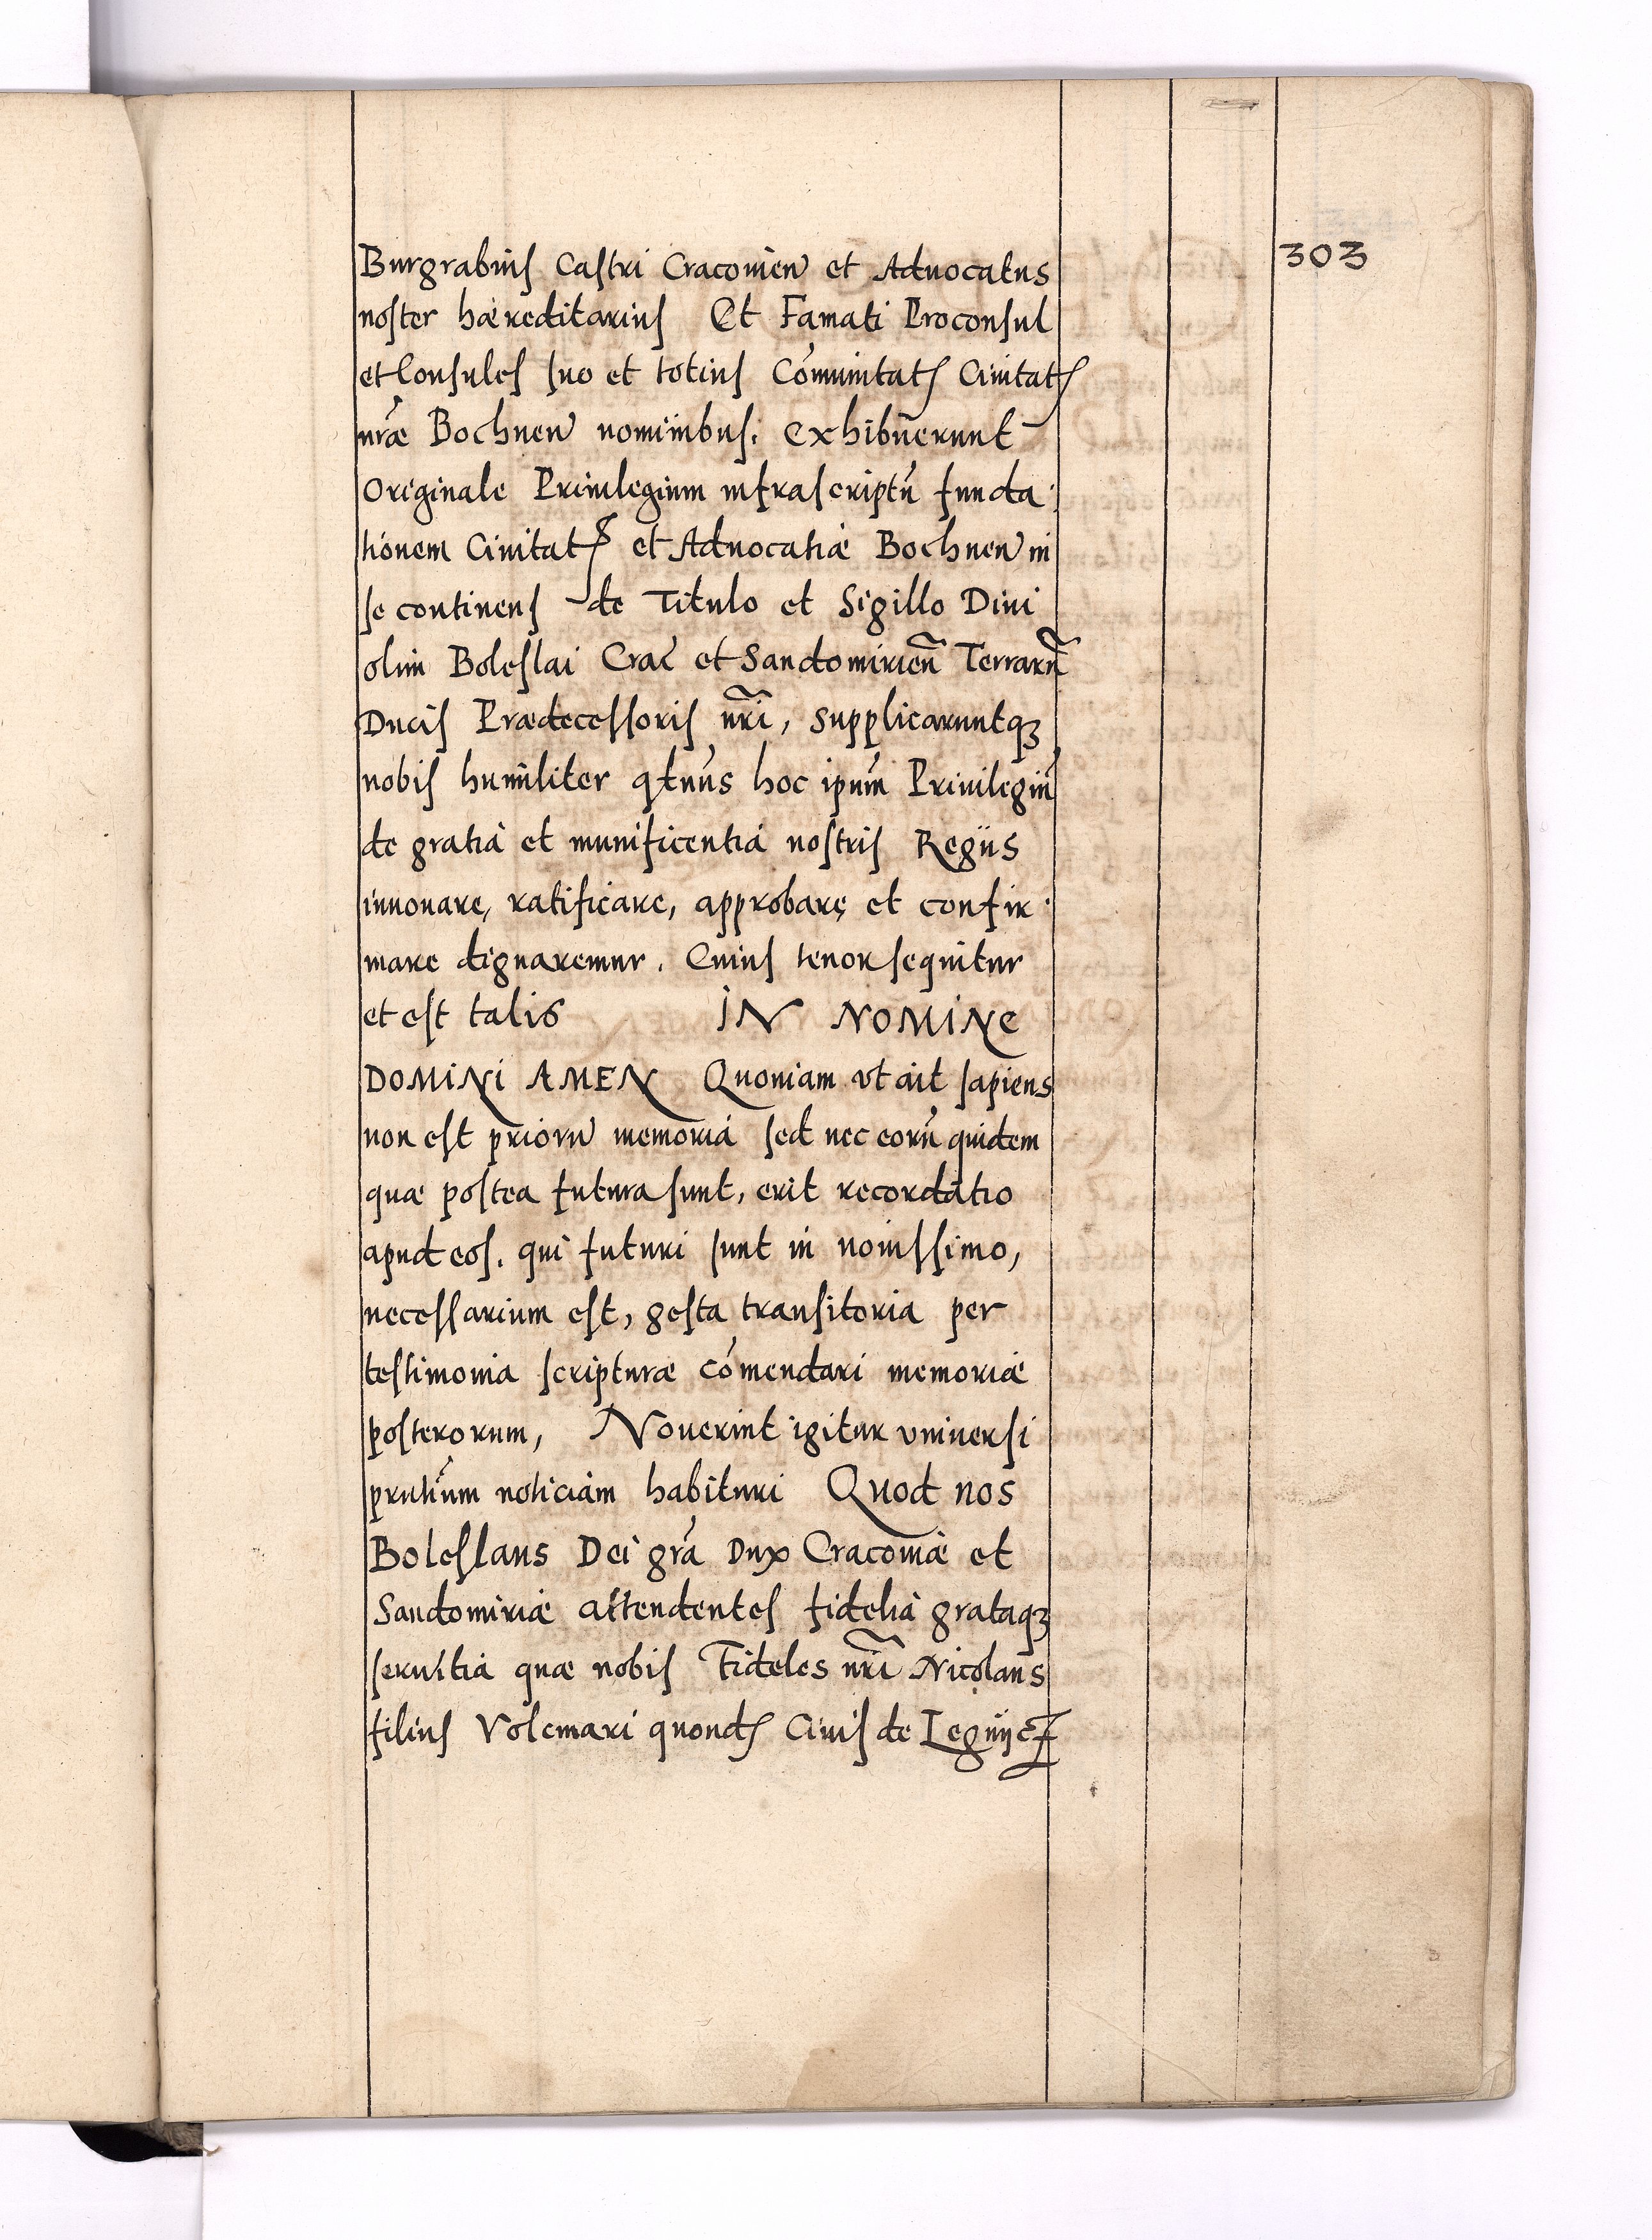 303
Burgrabius Castri Cracouien et Aduocatus
noster haereditarius Et Famati Proconsul
et Consules suo et totius Com̃unitatis Ciuitatis
nr̃ae Bochnen nominibus. exhibuerunt
Originale Priuilegium infrascriptũ funda-
tionem Ciuitatis et Aduocatiae Bochnen in
se continens de Titulo et Sigillo Diui
olim Boleslai Crac̃ et Sandomirieñ Terrarũ
Ducis Praedecessoris nr̃i, supplicaruntqꝫ
nobis humiliter qtnũs hoc ipũm Priuilegiũ
de gratia et munificentia nostris Regiis
innouare, ratificare, approbare, et confir-
mare dignaremur. Cuius tenor sequitur
et est talis IN NOMINE
DOMINI AMEN Quoniam vt ait sapiens
non est priorũ memoria sed nec eorũ quidem
quae postea futura sunt, erit recordatio
apud eos. qui futuri sunt in nouissimo,
necessarium est, gesta transitoria per
testimonia scripturae com̃endari memoriae
posterorum, Nouerint igitur vniuersi
pr̃ntium noticiam habituri Quod nos
Boleslaus Dei grã Dux Cracouiae et
Sandomiriae attendentes fidelia grataqꝫ
seruitia quae nobis Fideles nr̃i Nicolaus
filius Volemari quondã Ciuis de Legnijcz